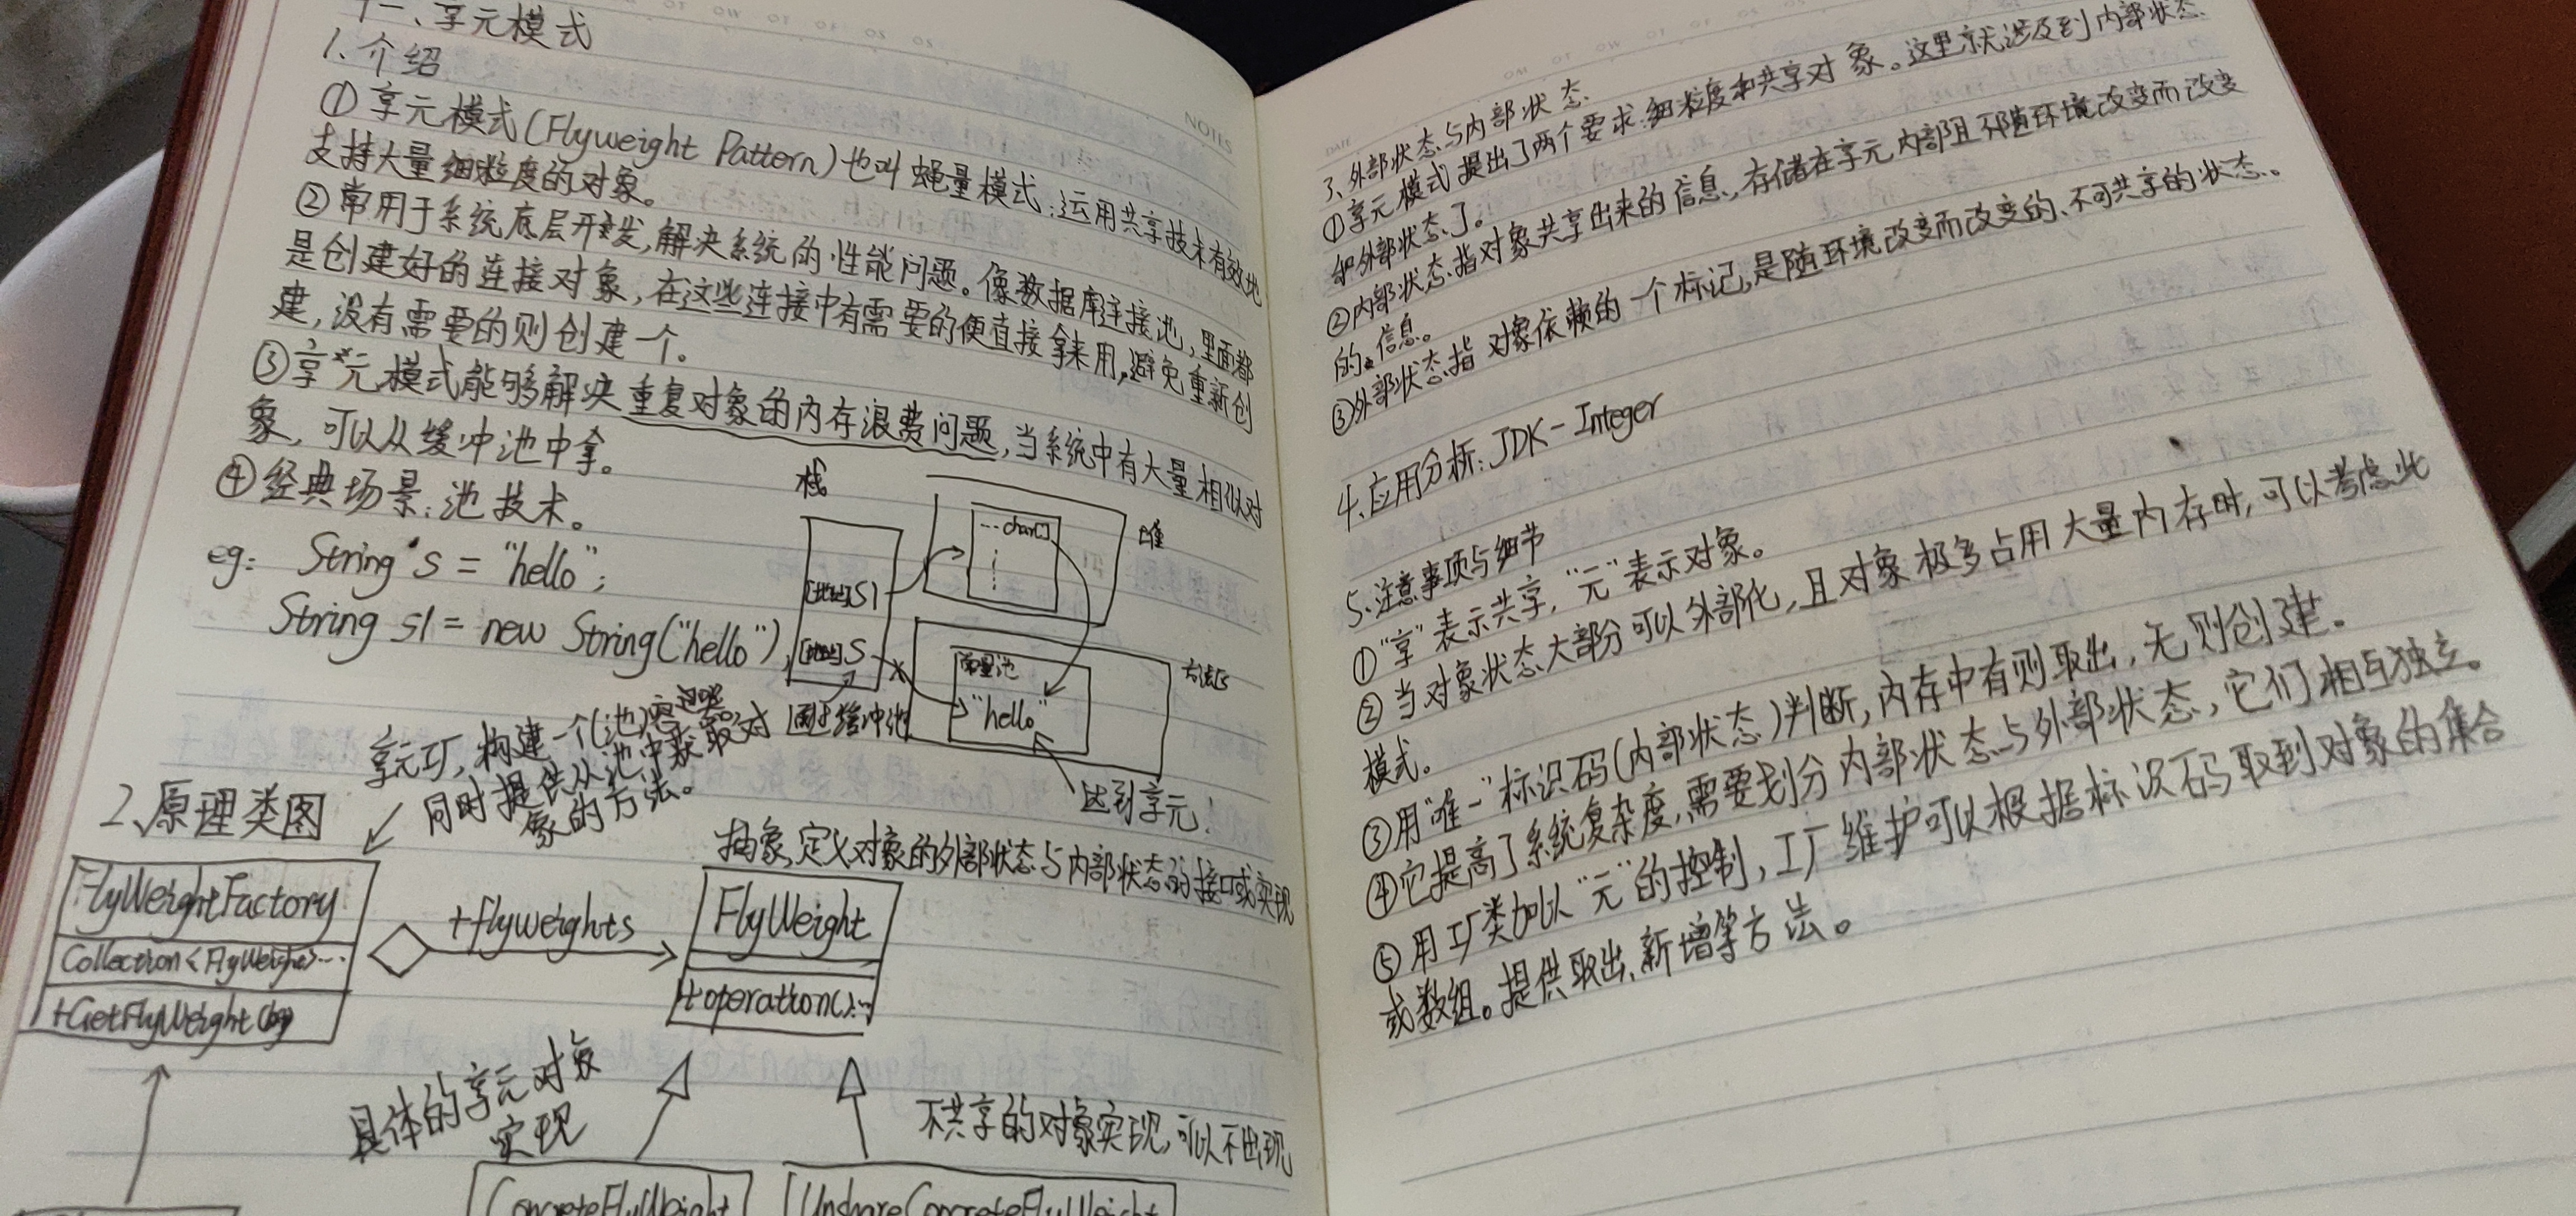 十一、享元模式
1、介绍
①享元模式(Flyweight Pattern)也叫蝇量模式:运用共享技术有效地
支持大量细粒度的对象。
②常用于系统底层开发,解决系统的性能问题。像数据库连接池,里面都
是创建好的连接对象,在这些连接中有需要的便直接拿来用,避免重新创
建,没有需要的则创建一个。
③享元模式能够解决重复对象的内存浪费问题,当系统中有大量相似对
象,可以从缓冲池中拿。
④经典场景:池技术。
eg: String s = "hello";
String s1 = new String("hello");
栈
[地址]S1
[地址]S
... char[]
堆
常量池
"hello"
方法区
缓冲池
达到享元!
2、原理类图
享元工厂,构建一个(池)容器。
同时提供从池中获取对
象的方法。
抽象,定义对象的外部状态与内部状态的接口或实现
FlyWeightFactory
Collection<FlyWeight>...
+GetFlyWeight(key)
+flyweights
FlyWeight
+operation()...
具体的享元对象
实现
不共享的对象实现,可以不出现
ConcreteFlyWeight
UnshareConcreteFlyWeight
NOTES
DATE
3、外部状态与内部状态
①享元模式提出了两个要求:细粒度和共享对象。这里就涉及到内部状态
和外部状态了。
②内部状态指对象共享出来的信息,存储在享元内部且不随环境改变而改变
的信息。
③外部状态指对象依赖的一个标记,是随环境改变而改变的、不可共享的状态。
4、应用分析:JDK-Integer
5、注意事项与细节
①"享"表示共享,"元"表示对象。
②当对象状态大部分可以外部化,且对象极多占用大量内存时,可以考虑此
模式。
③用"唯一"标识码(内部状态)判断,内存中有则取出,无则创建.
④它提高了系统复杂度,需要划分内部状态与外部状态,它们相互独立。
⑤用工厂类加以"元"的控制,工厂维护可以根据标识码取到对象的集合
或数组。提供取出、新增等方法。